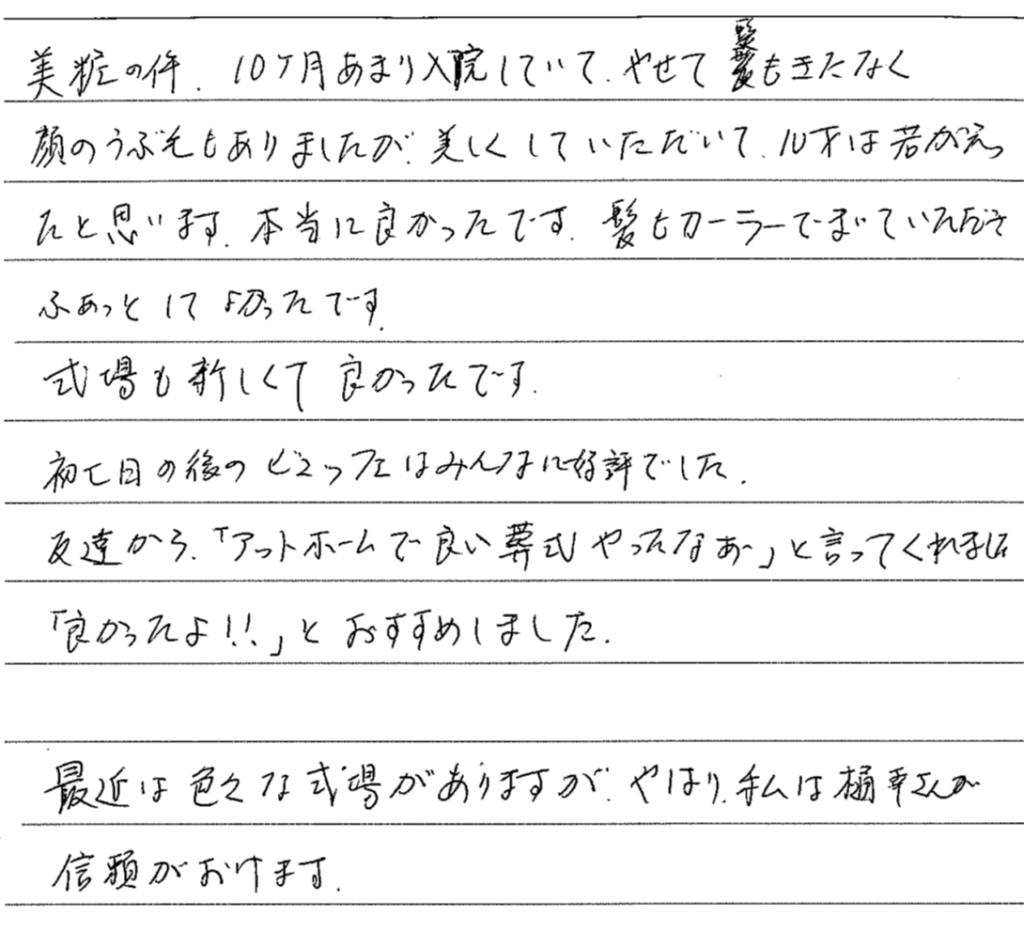 美粧の件. 10ヶ月あまり入院していて. やせて髪もきたなく
顔のうぶ毛もありましたが. 美しくしていただいて. 10才は若がえっ
たと思います. 本当に良かったです. 髪もカーラーでまいていただき
ふわっとして よかったです.
式場も新しくて 良かったです.
初七日の後のビュッフェはみんなに好評でした.
友達から.「アットホームで良い葬式やったなぁー」と言ってくれました
「良かったよ!!」と おすすめしました.
最近は色々な式場がありますが. やはり. 私は 幸さんが
信頼がおけます.